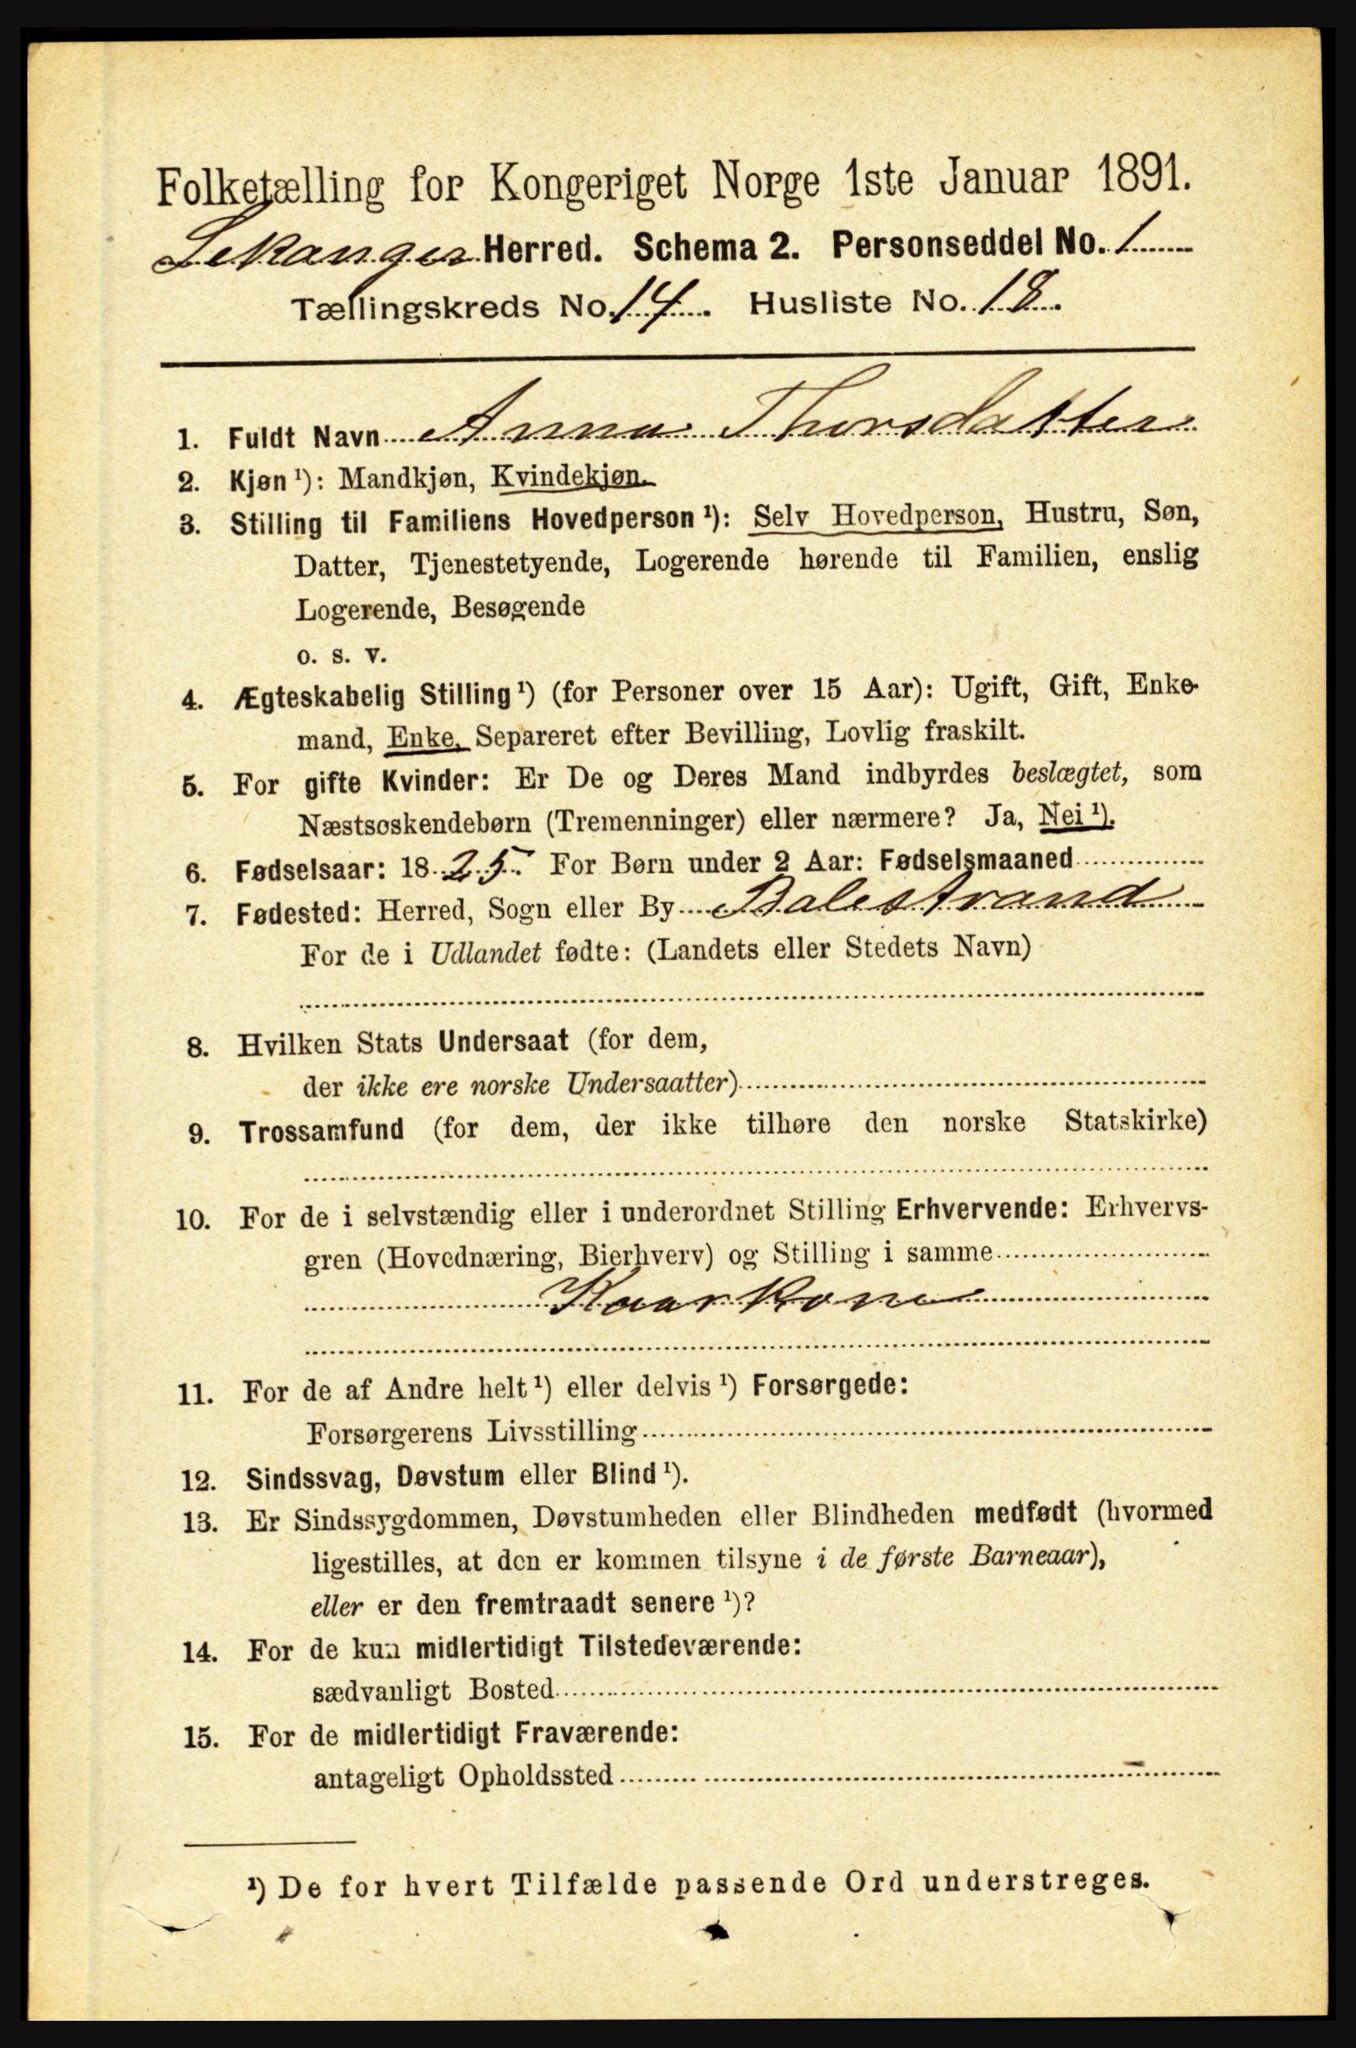 Folketælling for Kongeriget Norge 1ste Januar 1891.
Lekanger Herred. Schema 2. Personseddel No. 1
Tællingskreds No. 14. Husliste No. 18.
1. Fuldt Navn Anna Thorsdatter
2. Kjøn ¹): Mandkjøn, Kvindekjøn.
3. Stilling til Familiens Hovedperson ¹): Selv Hovedperson, Hustru, Søn,
Datter, Tjenestetyende, Logerende hørende til Familien, enslig
Logerende, Besøgende
o. s. v.
4. Ægteskabelig Stilling ¹) (for Personer over 15 Aar): Ugift, Gift, Enke-
mand, Enke, Separeret efter Bevilling, Lovlig fraskilt.
5. For gifte Kvinder: Er De og Deres Mand indbyrdes beslægtet, som
Næstsøskendebørn (Tremenninger) eller nærmere? Ja, Nei ¹).
6. Fødselsaar: 1825. For Børn under 2 Aar: Fødselsmaaned
7. Fødested: Herred, Sogn eller By Balestrand
For de i Udlandet fødte: (Landets eller Stedets Navn)
8. Hvilken Stats Undersaat (for dem,
der ikke ere norske Undersaatter)
9. Trossamfund (for dem, der ikke tilhøre den norske Statskirke)
10. For de i selvstændig eller i underordnet Stilling Erhvervende: Erhvervs-
gren (Hovednæring, Bierhverv) og Stilling i samme
Kaarkone
11. For de af Andre helt ¹) eller delvis ¹) Forsørgede:
Forsørgerens Livsstilling
12. Sindssvag, Døvstum eller Blind ¹).
13. Er Sindssygdommen, Døvstumheden eller Blindheden medfødt (hvormed
ligestilles, at den er kommen tilsyne i de første Barneaar),
eller er den fremtraadt senere ¹)?
14. For de kun midlertidigt Tilstedeværende:
sædvanligt Bosted
15. For de midlertidigt Fraværende:
antageligt Opholdssted
¹) De for hvert Tilfælde passende Ord understreges.